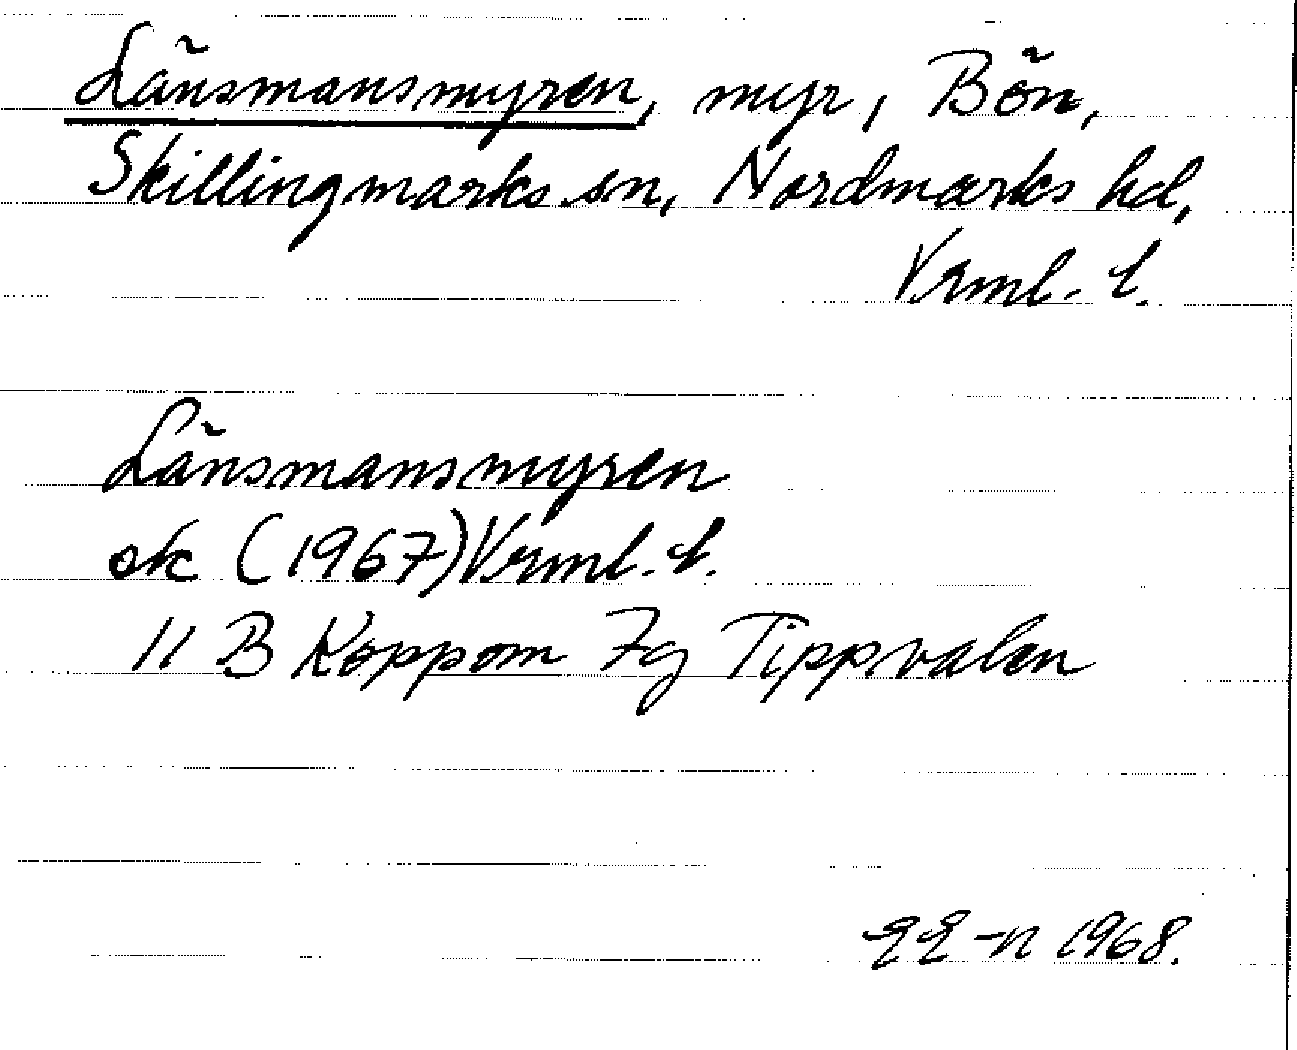 Länsmansmyren, myr, Bön,
Skillingmarks sn, Nordmarks hd,
Vrml. l.
Länsmansmyren
ek (1967) Vrml. l.
11 B Koppom 7g Tippvalen
EE-n 1968.